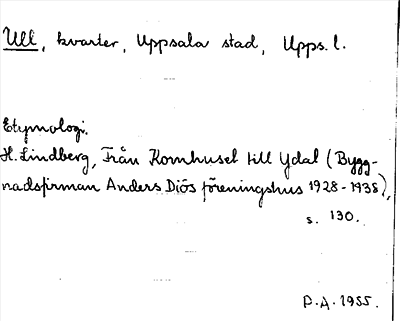 Ull, kvarter, Uppsala stad, Upps. l.
Etymologi.
H. Lindberg, Från Kornhuset till Ydal (Bygg-
nadsfirman Anders Diös föreningshus 1928-1938),
s. 130.
P.A. 1955.